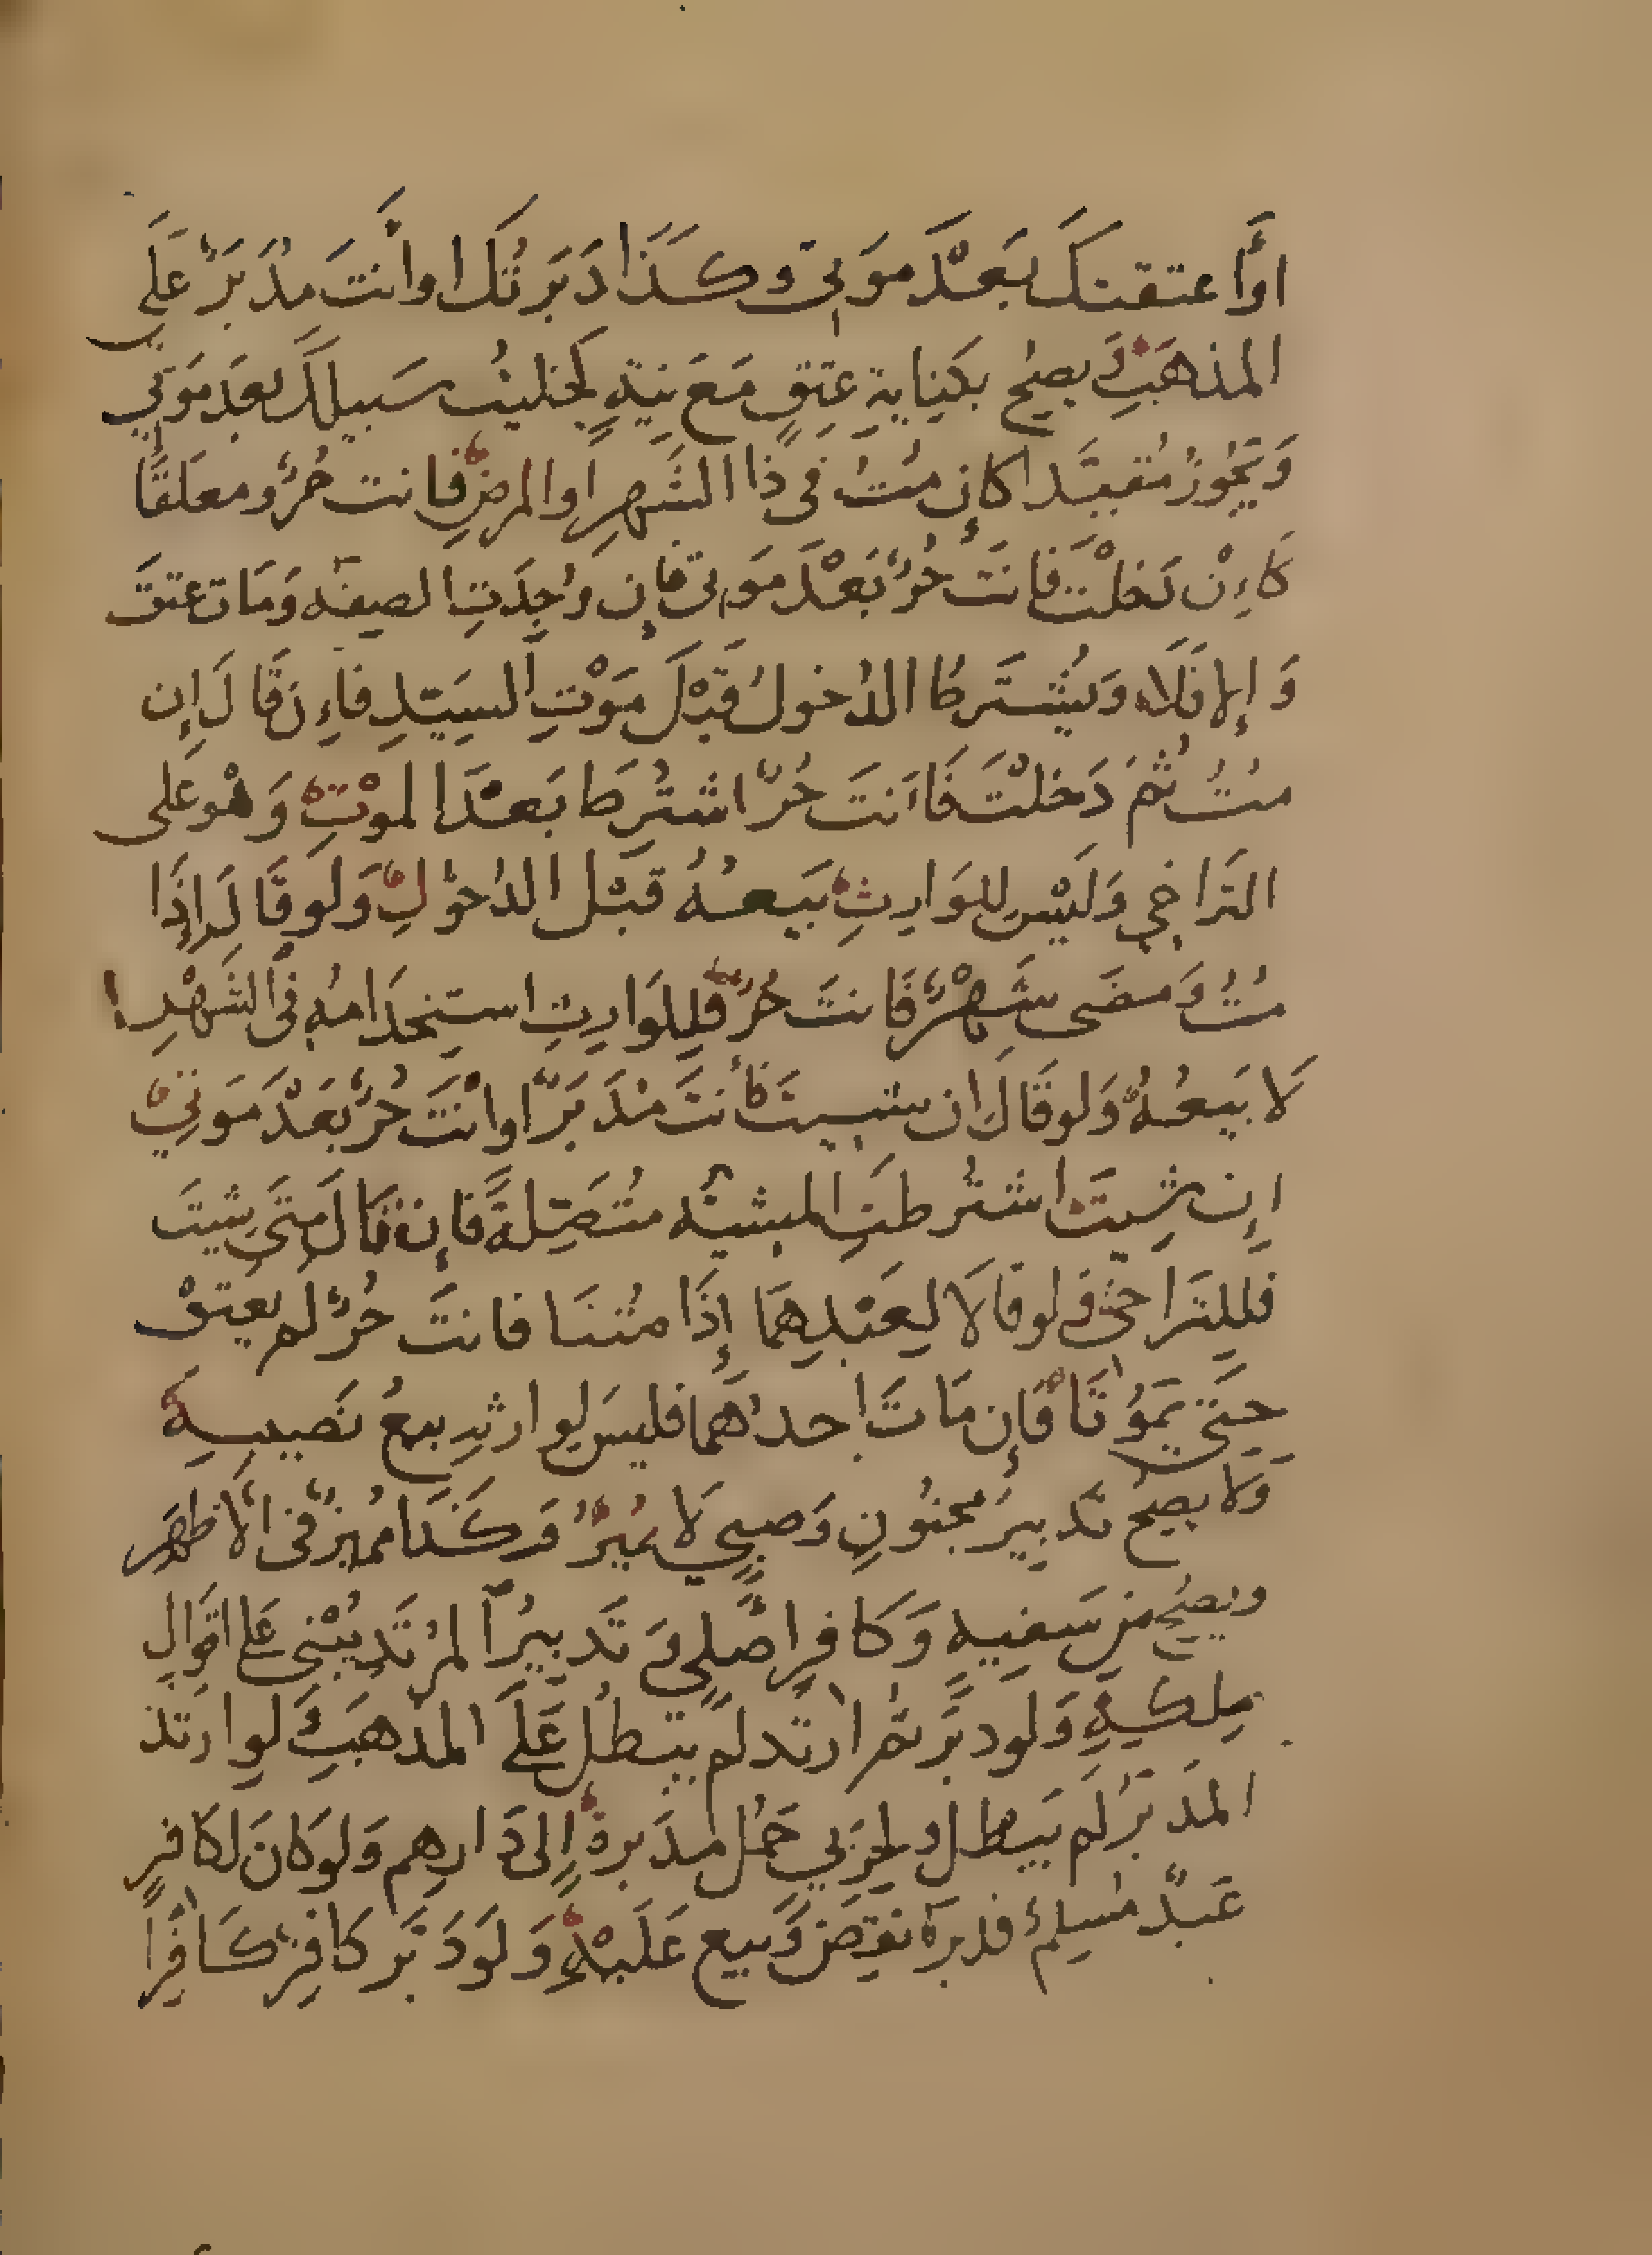 اوَأعتقتكَ بَعْدَ مَوتي وكَذَا دَبَرتُكَ اوأنتَ مدَبَرٌ علَي
المذهَبِ وَيصحُ بكنايةِ عتقٍ مَعَ نيةٍ لخليتُ سَبيلكَ بعدَ مَوتي
وَيَجُوزُ مُقيَّدا كإن مُتُ في ذا الشَهرِ اوالمرضِ فانت حُرٌ ومعلقًا
كَاءِنْ دَخلْتَ فانتَ حُرٌ بَعْدَ مَوتي فإن وُجِدَتِ الصفه وَمَات عتقَ
وَإلا فَلا وَيُشتَرط الدُخولُ قَبْلَ مَوْتِ السَيّدِ فاءِن قَالَ إن
متُ ثُمَ دَخلْتَ فَاَنتَ حُرٌ اشتُرِط بَعْدَ الموْتِ وَهُو على
التَراخي وَلَيْسَ للوَارِثِ بَيعهُ قَبْل الدُخوْلِ وَلوقَالَ إذَا
متُ وَمضَى شَهْرٌ فَانتَ حُرٌ فَلِلوَارِثِ استِخدَامُه في الشَهْرِ
لَا بَيعُهُ وَلوقَالَ ان شيتَ فأنتَ مُدَبَرٌ اوانْتَ حُرٌ بَعْدَ مَوتِي
إن شِيتَ اشتُرطَتِ المشيئه متُصِلةً فإن قَالَ متَى شيتَ
فلِلتَراخي ولوقالَا لِعَبْدِهِمَا إذَا متُنَا فانتَ حُرٌ لم يعتقْ
حَتى يَمُوتَا فَإن مَاتَ احدُهمَا فليسَ لوارثهِ بيعُ نَصيبِهِ
وَلا يصحُ تَدبيرُ مجنُونٍ وَصبيٍ لَا يميزُ وَكَذَا مُميزٌ في الَاظهَرِ
ويصحُ من سَفيهٍ وَكَافرٍ اصْليٍ وَ تَدبيرُ المُرْتَدِ يُبْنى عَلي اقوَالِ
مِلكهِ وَلودبَر ثمَ ارتَد لم يبطُل عَلَى المذهَبِ وَ لوارتد
المدَبَرُ لَم يَبطل ولحَربي حَمْل مدَبرهِ إلى دَارِهم وَلوكانَ لكافرٍ
عَبدٌ مُسلمٌ فدبرهَ نقضَ وَبيع عَلَيْهِ وَ لَو دَبَر كافرٌ كَافرًا